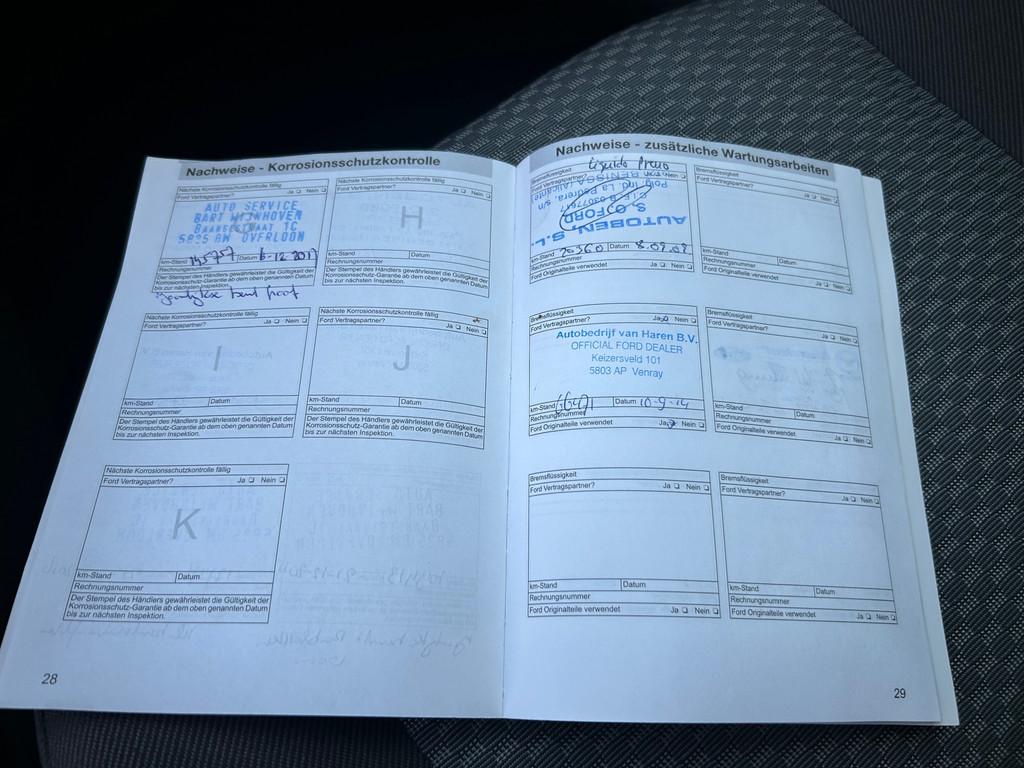 Nachweise - Korrosionsschutzkontrolle
Nächste Korrosionsschutzkontrolle fällig
Ford Vertragspartner? Ja Nein
AUTO SERVICE
BART WIJNHOVEN
1C
5825 AW OVERLOON
km-Stand 145757 Datum 6-12 2017
Rechnungsnummer
Der Stempel des Händlers gewährleistet die Gültigkeit der
Korrosionsschutz-Garantie ab dem oben genannten Datum
bis zur nächsten Inspektion.
Nächste Korrosionsschutzkontrolle fällig
Ford Vertragspartner? Ja Nein
H
km-Stand Datum
Rechnungsnummer
Der Stempel des Händlers gewährleistet die Gültigkeit der
Korrosionsschutz-Garantie ab dem oben genannten Datum
bis zur nächsten Inspektion.
Nächste Korrosionsschutzkontrolle fällig
Ford Vertragspartner? Ja Nein
I
km-Stand Datum
Rechnungsnummer
Der Stempel des Händlers gewährleistet die Gültigkeit der
Korrosionsschutz-Garantie ab dem oben genannten Datum
bis zur nächsten Inspektion.
Nächste Korrosionsschutzkontrolle fällig
Ford Vertragspartner? Ja Nein
J
km-Stand Datum
Rechnungsnummer
Der Stempel des Händlers gewährleistet die Gültigkeit der
Korrosionsschutz-Garantie ab dem oben genannten Datum
bis zur nächsten Inspektion.
Nächste Korrosionsschutzkontrolle fällig
Ford Vertragspartner? Ja Nein
K
km-Stand Datum
Rechnungsnummer
Der Stempel des Händlers gewährleistet die Gültigkeit der
Korrosionsschutz-Garantie ab dem oben genannten Datum
bis zur nächsten Inspektion.
28
Nachweise - zusätzliche Wartungsarbeiten
Bremsflüssigkeit Liquido Freno
Ford Vertragspartner? Nein
AUTOBEN, S.L.
S.O. FORD
Pol. Ind. La Pedrera, s/n
BENISSA (Alicante)
km-Stand 20360 Datum 8.09.08
Rechnungsnummer
Ford Originalteile verwendet Ja Nein
Ford Vertragspartner?
Ja Nein
km-Stand Datum
Rechnungsnummer
Ford Originalteile verwendet
Ja Nein
Bremsflüssigkeit
Ford Vertragspartner? Ja Nein
Autobedrijf van Haren B.V.
OFFICIAL FORD DEALER
Keizersveld 101
5803 AP Venray
km-Stand Datum 10-9-14
Rechnungsnummer
Ford Originalteile verwendet Ja Nein
Bremsflüssigkeit
Ford Vertragspartner?
Ja Nein
km-Stand Datum
Rechnungsnummer
Ford Originalteile verwendet
Ja Nein
Bremsflüssigkeit
Ford Vertragspartner? Ja Nein
km-Stand Datum
Rechnungsnummer
Ford Originalteile verwendet Ja Nein
Bremsflüssigkeit
Ford Vertragspartner?
Ja Nein
km-Stand Datum
Rechnungsnummer
Ford Originalteile verwendet Ja Nein
29